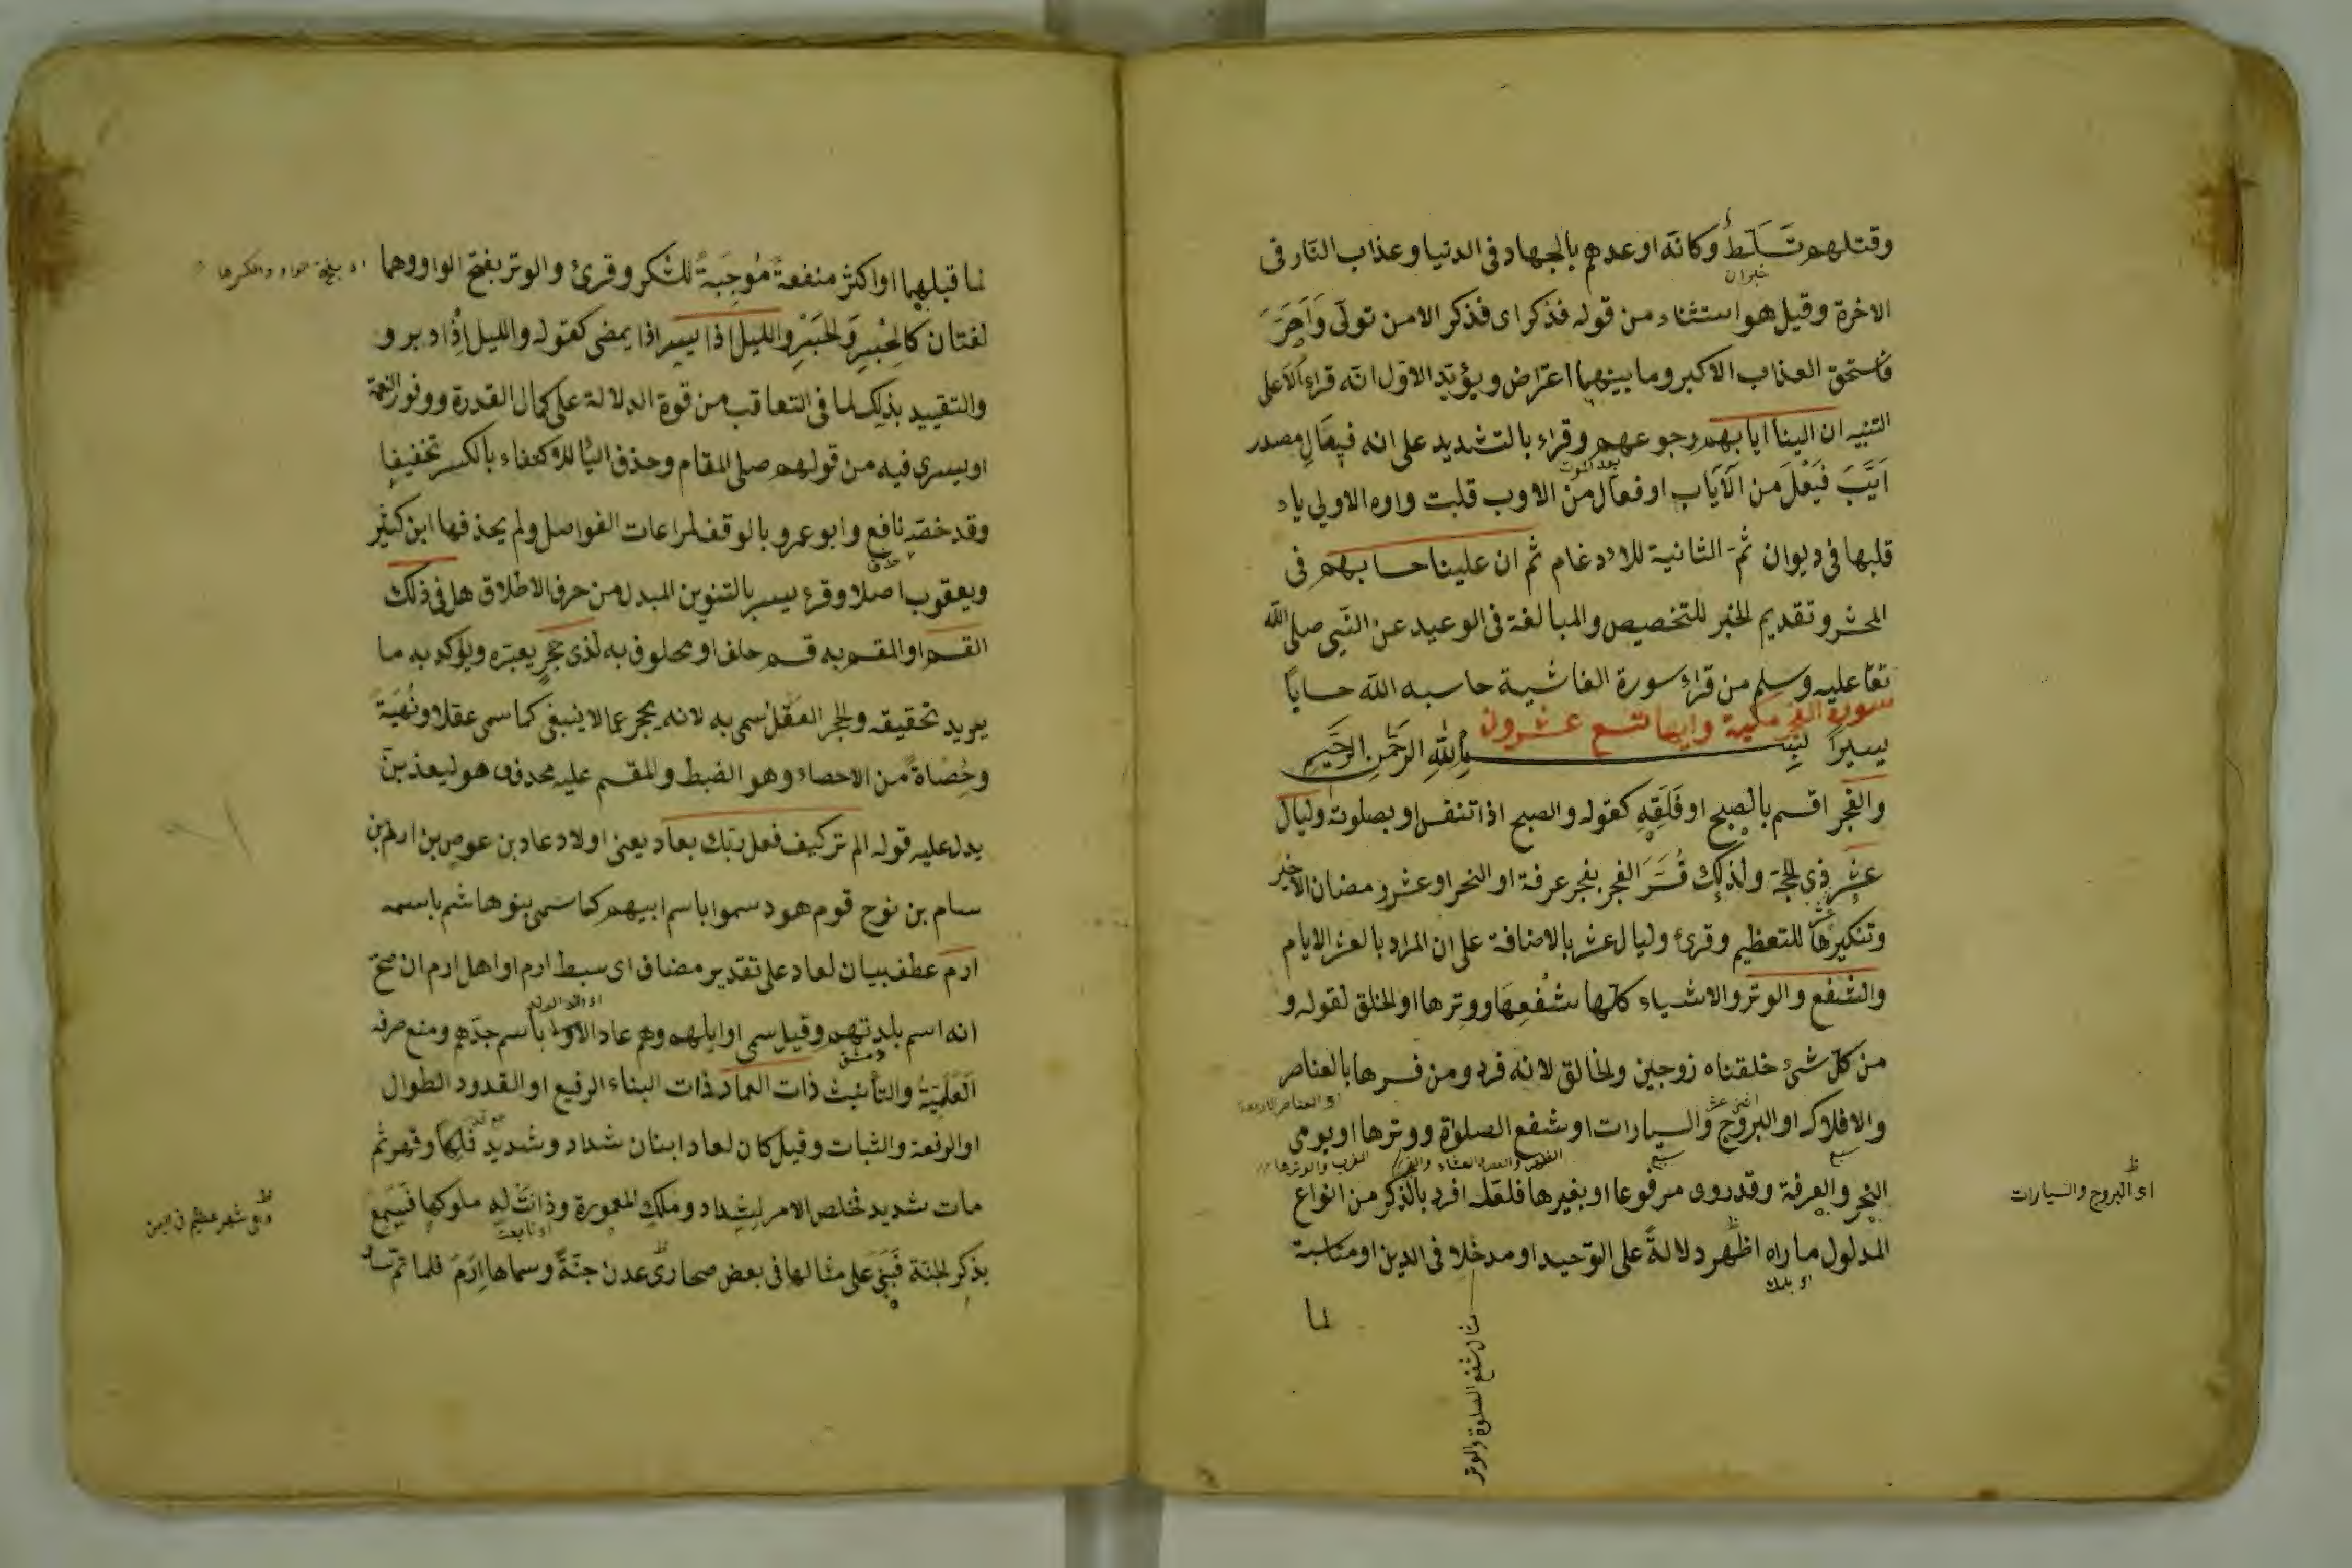 وقتلهم تسلط وكانه اوعدهم بالجهاد فى الدنيا وعذاب النار فى
الاخرة وقيل هو استثناء من قوله فذكر اى فذكر الا من تولى واصر
فاستحق العذاب الاكبر وما بينهما اعتراض ويؤيد الاول انه قرئ الا على
التنبيه ان الينا ايابهم رجوعهم وقرئ بالتشديد على انه فيعال مصدر
ايب فيعل من الاياب او فعال من الاوب قلبت واوه الاولى ياء
قلبها فى ديوان ثم الثانية للادغام ثم ان علينا حسابهم فى
المحشر وتقديم الخبر للتخصيص والمبالغة فى الوعيد عن النبى صلى الله
تعا عليه وسلم من قراء سورة الغاشية حاسبه الله حسابا
سورة الفجر مكية وايها تسع عشرون
يسيرا بسم الله الرحمن الرحيم
والفجر اقسم بالصبح او فلقه كقوله والصبح اذا تنفس او بصلوته وليال
عشر ذى الحجة ولذلك فسر الفجر بفجر عرفة او النحر او عشر رمضان الاخير
وتنكيرها للتعظيم وقرئ وليال عشر بالاضافة على ان المراد بالعشر الايام
والشفع والوتر والاشياء كلها شفعها ووترها او الخلق لقوله و
من كل شئ خلقناه زوجين والخالق لانه فرد ومن فسرها بالعناصر
او العناصر الاربعة
والافلاك او البروج والسيارات او شفع الصلوة ووترها او يومى
النحر والعرفة وقد روى مرفوعا او بغيرها فلعله افرد بالذكر من انواع
اى البروج والسيارات
المدلول ما راه اظهر دلالة على التوحيد او مدخلا فى الدين او مناسبة
لما
مثال شفع الصلوة والوتر
لما قبلهما او اكثر منفعة موجبة للشكر وقرئ والوتر بفتح الواو وهما
لغتان كالحبر والحبر والليل اذا يسر اذا يمضى كقوله والليل اذا دبر و
والتقييد بذلك لما فى التعاقب من قوة الدلالة على كمال القدرة ووفور النعمة
او يسرى فيه من قولهم صلى المقام وحذف الياء للاكتفاء بالكسر تخفيفا
وقد خصه نافع وابو عمرو بالوقف لمراعات الفواصل ولم يحذفها ابن كثير
ويعقوب اصلا وقرئ يسر بالتنوين المبدل من حرف الاطلاق هل فى ذلك
القسم او المقسم به قسم حلف او محلوف به لذى حجر يعتبره ويؤكد به ما
يريد تحقيقه والحجر العقل سمى به لانه يحجر عما لا ينبغى كما سمى عقلا ونهية
وحصاة من الاحصاء وهو الضبط والمقسم عليه محذوف هو ليعذبن
يدل عليه قوله الم تر كيف فعل ربك بعاد يعنى اولاد عاد بن عوص بن ارم بن
سام بن نوح قوم هود سموا باسم ابيهم كما سمى بنو هاشم باسمه
ارم عطف بيان لعاد على تقدير مضاف اى سبط ارم او اهل ارم ان صح
انه اسم بلدتهم وقيل سمى اوايلهم وهم عاد الاولى باسم جدهم ومنع صرفه
دمشق
العلمية والتأنيث ذات العماد ذات البناء الرفيع او القدود الطوال
او الرفعة والثبات وقيل كان لعاد ابنان شداد وشديد فلكا وقهر ثم
مات شديد فخلص الامر لشداد وملك المعمورة وذانت له ملوكها فسمع
بذكر الجنة فبنى على مثالها فى بعض صحارى عدن جنة وسماها ارم فلما تم سار